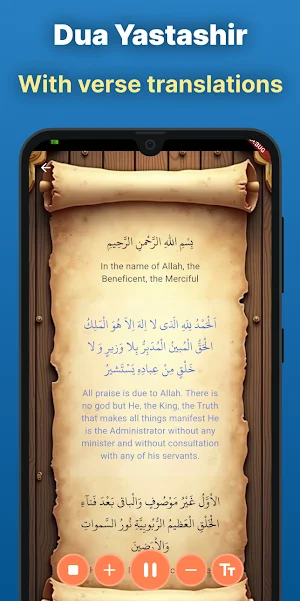 Dua Yastashir
With verse translations
بِسْمِ اللهِ الرَّحْمٰنِ الرَّحِيمِ
In the name of Allah, the
Beneficent, the Merciful
اَلْحَمْدُ لِلّٰهِ الَّذى لا اِلهَ اِلاّ هُوَ الْمَلِكُ
الْحَقُّ الْمُبينُ الْمُدَبِّرُ بِلا وَزيرٍ وَ لا
خَلْقٍ مِنْ عِبادِهِ يَسْتَشيرُ
All praise is due to Allah. There is
no god but He, the King, the Truth
that makes all things manifest He
is the Administrator without any
minister and without consultation
with any of his servants.
الأوَّلُ غَيْرُ مَوْصُوفٍ وَالْباقى بَعْدَ فَنآءِ
الْخَلْقِ الْعَظيمُ الرُّبُوبِيَّةِ نُورُ السَّمواتِ
وَالاْرَضينَ
Tт